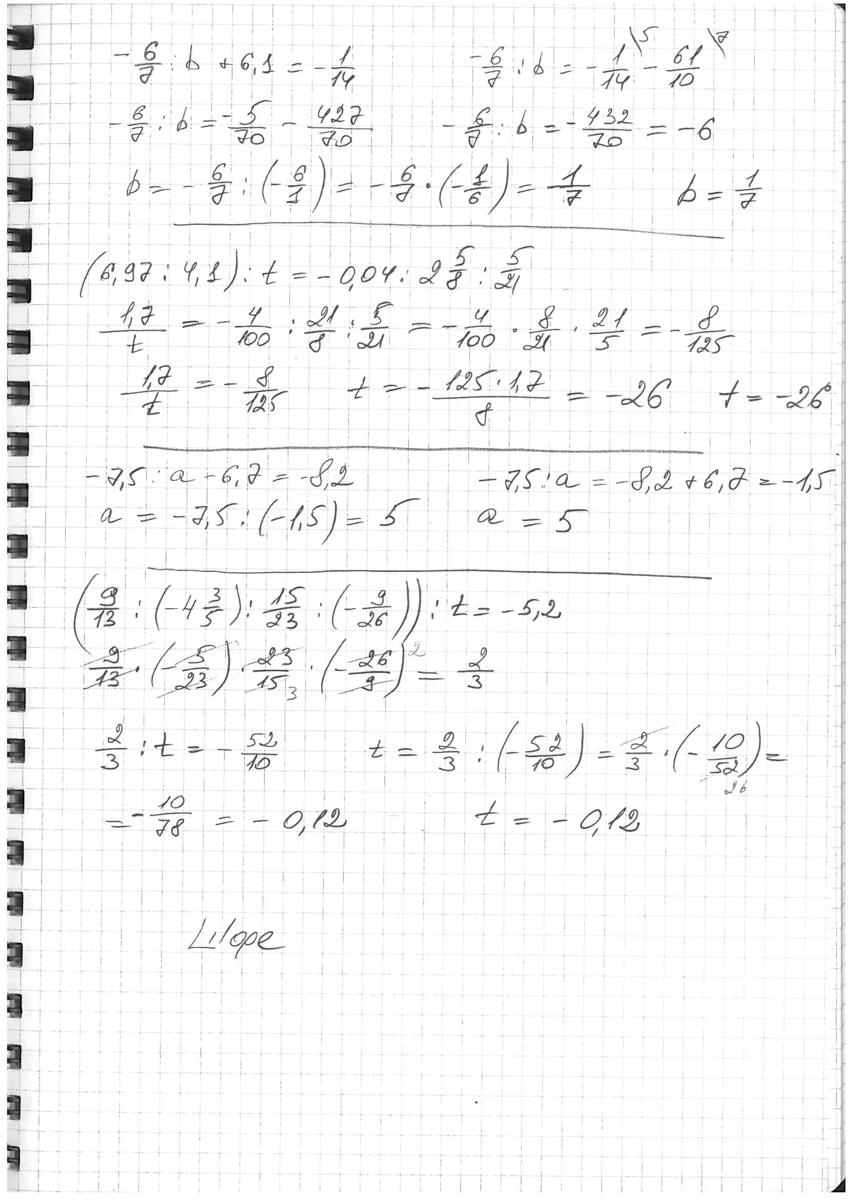 -6/7 : b + 6,1 = -1/14    -6/7 : b = -1/14 \5 - 61/10 \7
-6/7 : b = -5/70 - 427/70    -6/7 : b = -432/70 = -6
b = -6/7 : (-6/1) = -6/7 · (-1/6) = 1/7    b = 1/7
(6,97 : 4,1) : t = -0,04 : 2 5/8 : 5/21
1,7/t = -4/100 : 21/8 : 5/21 = -4/100 · 8/21 · 21/5 = -8/125
1,7/t = -8/125    t = -125·1,7/8 = -26    t = -26
-7,5 : a - 6,7 = -8,2    -7,5 : a = -8,2 + 6,7 = -1,5
a = -7,5 : (-1,5) = 5    a = 5
(9/13 : (-4 3/5) : 15/23 : (-9/26)) : t = -5,2
9/13 · (-5/23) · 23/15 3 · (-26/9) 2 = 2/3
2/3 : t = -52/10    t = 2/3 : (-52/10) = 2/3 · (-10/52 26) =
= -10/78 = -0,12    t = -0,12